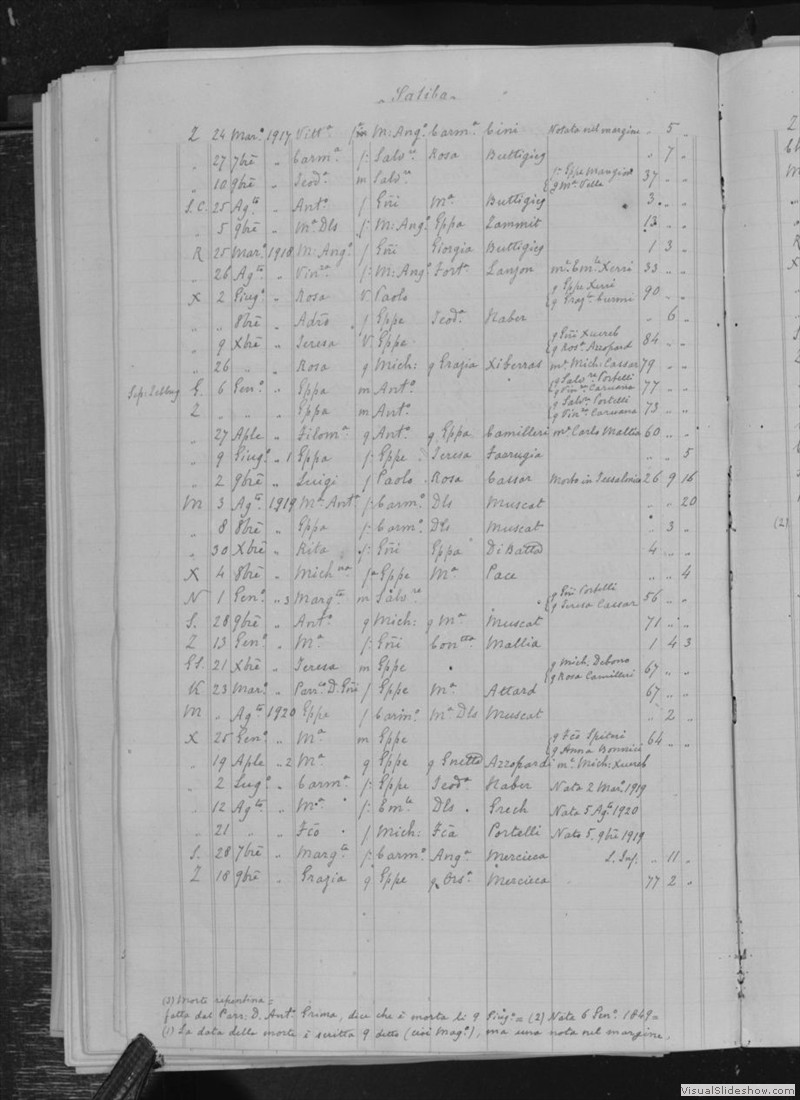 „ Saliba „
Z 24 Mar.o 1917 Vitt.a M: Ang.o Carm.a Cini Notata nel margine „ 5 „
„ 27 7bre „ Carm.a f: Salv.re Rosa Buttigieg „ 7 „
„ 10 9bre „ Teod.a m Salv.re f: Eppe Mangion g M.a Vella 37 „ „
S.C. 25 Ag.to „ Ant.o f Gñi M.a Buttigieg 3 „ „
„ 5 9bre „ M.a Dls f: M: Ang.o Eppa Zammit 13 „ „
R 25 Mar.o 1918 M: Ang.o f Gñi Giorgia Buttigieg 1 3 „
„ 26 Ag.to „ f: M: Ang.o Fort.a Lanzon m.e Em.le Xerri 33 „ „
X 2 Giug.o „ Rosa V. Paolo g Eppe Xerri g Graz.a Curmi 90 „ „
„ „ 8bre „ f Eppe Teod.a Naber „ 6 „
„ 9 Xbre „ Teresa V. Eppe g Gñi Xuereb g Ros.a Azzopard 84 „ „
„ 26 „ „ Rosa g Mich: g Grazia Xiberras m.e Mich: Cassar 79 „ „
Sep: Zebbug G. 6 Gen.o „ Eppa m Ant.o g Salv.re Portelli g Vin.za Caruana 77 „ „
Z „ „ „ Eppa m Ant.o g Salv.re Portelli g Vin.za Caruana 73 „ „
„ 27 Aple „ Filom.a g Ant.o g Eppa Camilleri m.e Carlo Mallia 60 „ „
„ 9 Giug.o „ 1 Eppa f: Eppe Teresa Farrugia „ „ 5
„ 2 9bre „ Luigi f Paolo Rosa Cassar Morto in Tessalonia 26 9 16
M 3 Ag.to 1919 M.a Ant.a f: Carm.o Dls Muscat „ „ 20
„ 8 8bre „ Eppa f: Carm.o Dls Muscat „ 3 „
„ 30 Xbre „ Rita f: Gñi Eppa Di Batta 4 „ „
X 4 8bre „ Mich.na f: Eppe M.a Pace „ „ 4
N 1 Gen.o „ 3 Marg.ta m Salv.re g Gñi Portelli g Teresa Cassar 56 „ „
S. 28 9bre „ Ant.o g Mich: g M.a Muscat 71 „ „
Z 13 Gen.o „ M.a f: Gñi Con.tta Mallia 1 4 3
GS. 21 Xbre „ Teresa m Eppe g Mich: Debono g Rosa Camilleri 67 „ „
K 23 Mar.o „ Parr.co D. Gñi f Eppe M.a Attard 67 „ „
M „ Ag.to 1920 Eppe f Carm.o M.a Dls Muscat „ 2 „
X 25 Gen.o „ M.a m Eppe g Fco Spiteri g Anna Bonnici 64 „ „
„ 19 Aple „ 2 M.a g Eppe g Azzopardi m.e Mich: Xuereb
„ 2 Lug.o „ Carm.a f: Eppe Teod.a Naber Nata 2 Mar.o 1919
„ 12 Ag.to „ M.a f: Em.le Dls Grech Nata 5 Ag.to 1920
„ 21 „ „ Fco f Mich: Fca Portelli Nato 5, 9bre 1919
S. 28 7bre „ Marg.ta f: Carm.o Ang.a Mercieca S. Inf. „ 11 „
Z 18 9bre „ Grazia g Eppe g Ors.a Mercieca 77 2 „
(3) Morte repentina =
fatta dal Parr: D. Ant.o Grima, dice che è morta li 9 Giug.o = (2) Nata 6 Gen.o 1849 =
(1) La data della morte è scritta 9 detto (cioè Mag.o), ma una nota nel margine,
Z
M
X
(2)
VisualSlideshow.com